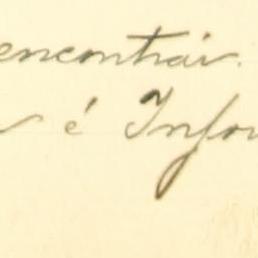 encontrár.
é Infor